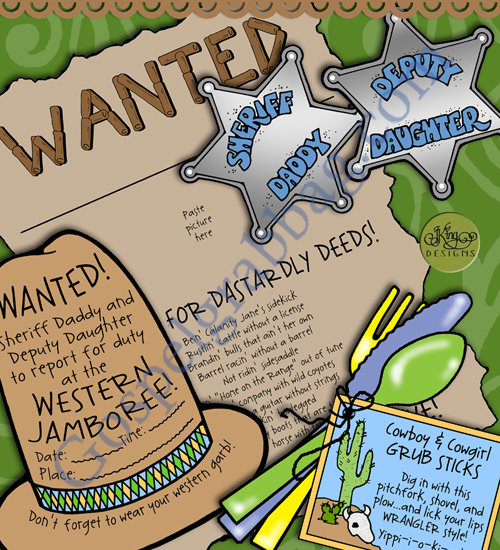 WANTED
SHERIFF
DADDY
DEPUTY
DAUGHTER
Paste
picture
here
King
DESIGNS
FOR DASTARDLY DEEDS!
Bein' Calamity Jane's sidekick
Rustlin' cattle without a license
Brandin' bulls that ain't her own
Barrel racin' without a barrel
Not ridin' sidesaddle
"Home on the Range" out of tune
company with wild coyotes
guitar without strings
legged
boots
horse with
WANTED!
Sheriff Daddy and
Deputy Daughter
to report for duty
at the
WESTERN
JAMBOREE!
Date:
Time:
Place:
Don't forget to wear your western garb!
Cowboy & Cowgirl
GRUB STICKS
Dig in with this
pitchfork, shovel, and
plow...and lick your lips
WRANGLER style!
Yippi-i-o-
Gospelgrabbag.com